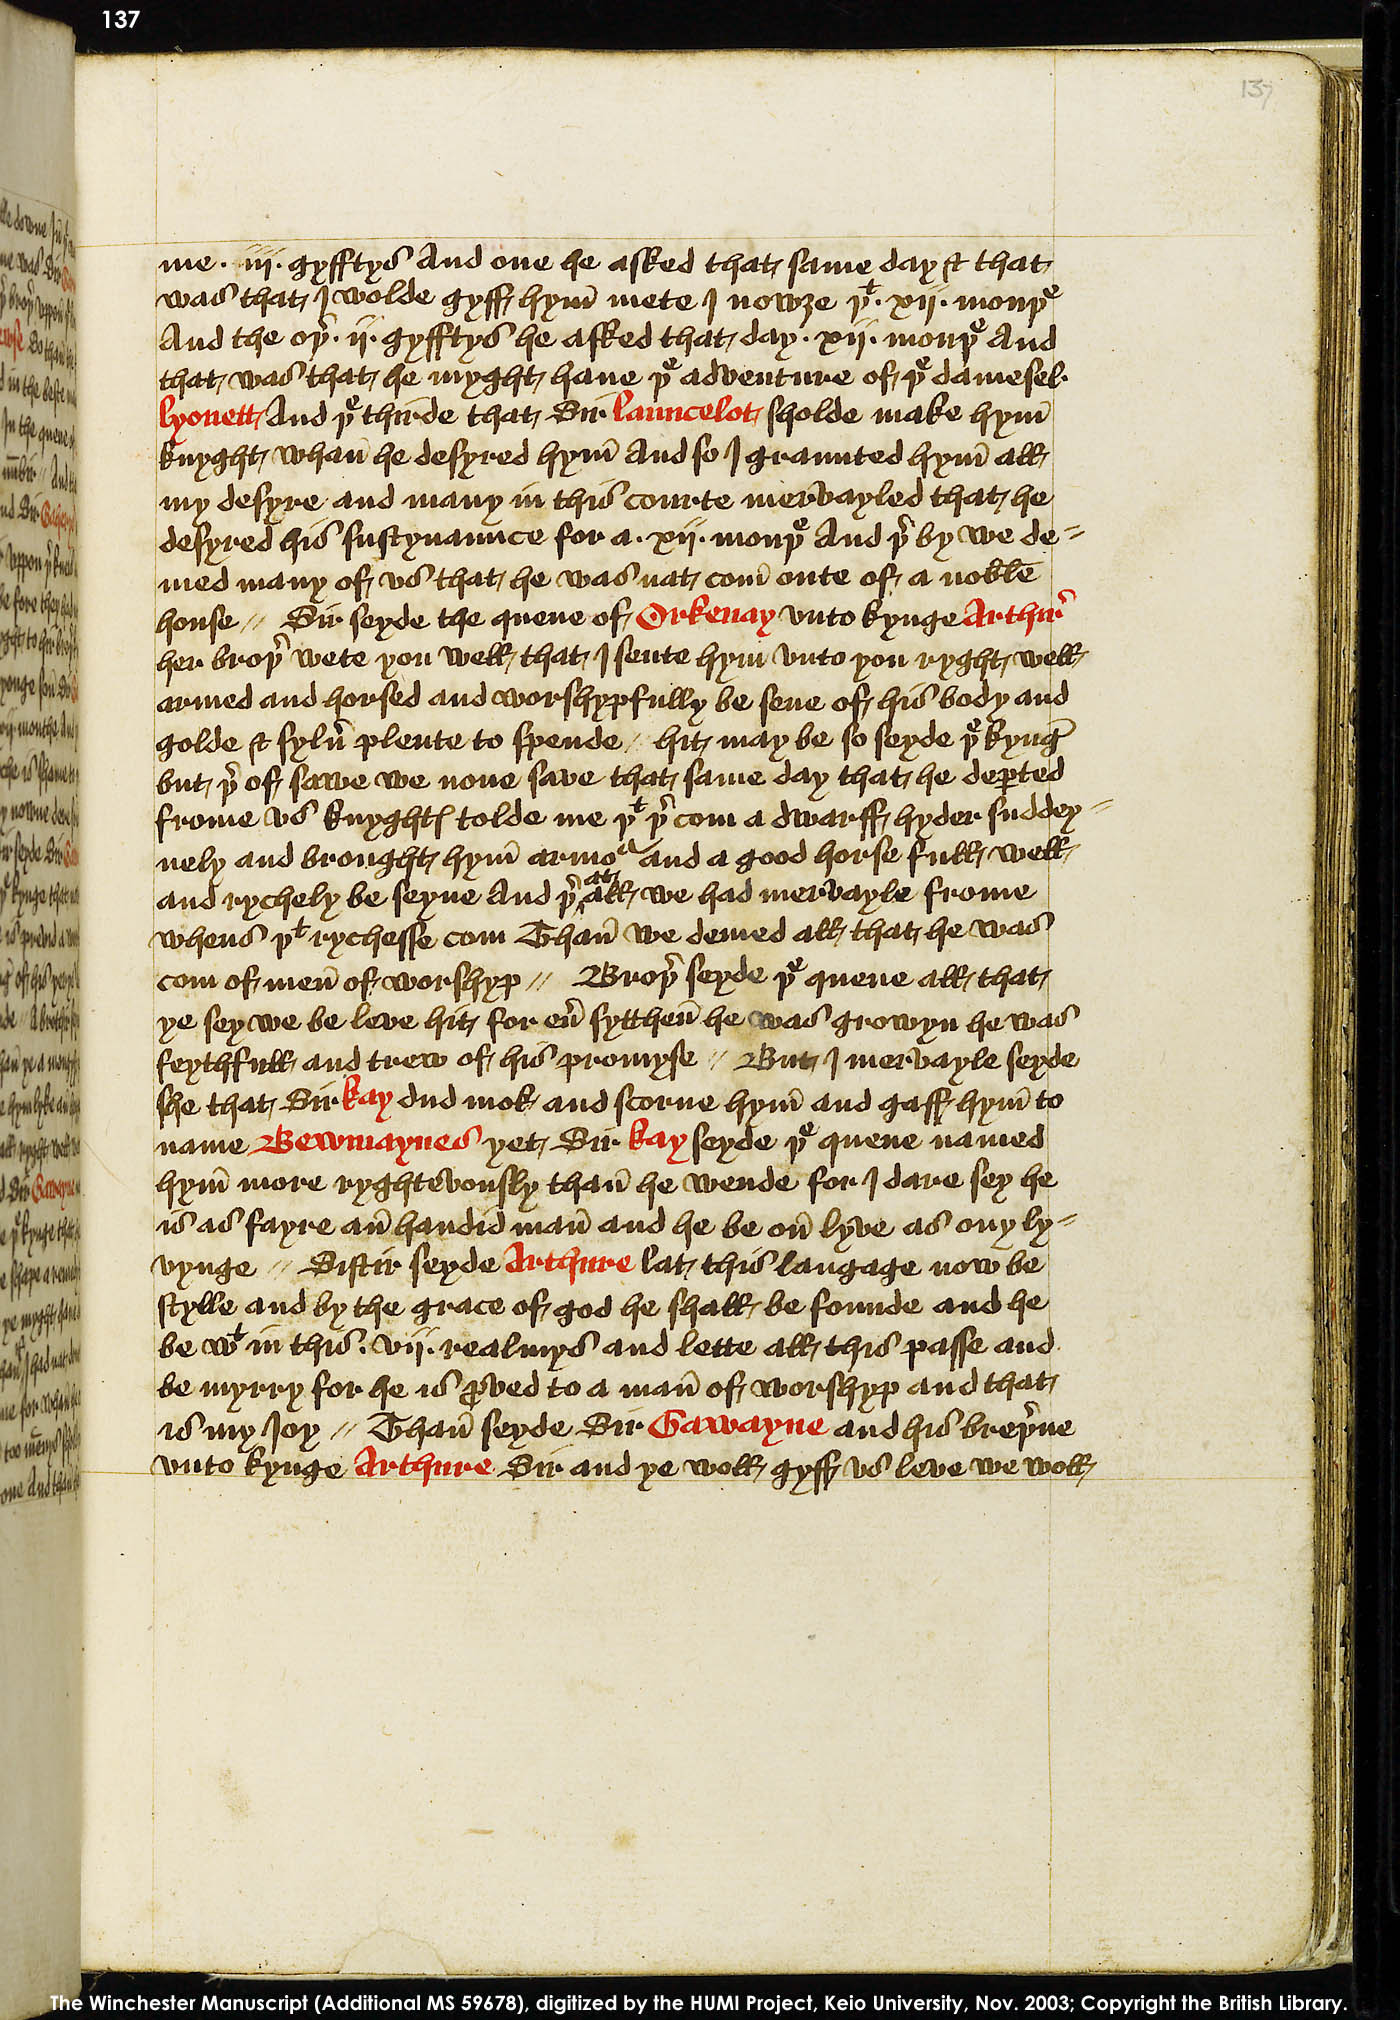 137
137
me · iij · gyfftys And one he asked that same day & that
was that I wolde gyff hym̄ mete I nowȝe þᵗ · xij · monþᵉ
And the oþ̉ · ij · gyfftys he asked that day · xij · monþᵉ And
that was that he myght haue þᵉ adventure of þᵉ damesel
lyonett And þᵉ thirde that Sir launcelot sholde make hym̄
knyght whan̄ he desyred hym̄ And so I graunted hym̄ all
my desyre and many in this courte mervayled that he
desyred his sustynaunce for a · xij · monþᵉ And þ̉ by we de=
med many of vs that he was nat com̄ oute of a noble
house // Sir seyde the quene of Orkenay vnto kynge Arthur̉
her broþ̉ wete you well that I sente hym vnto you ryght well
armed and horsed and worshypfully be sene of his body and
golde & sylū̉ plente to spende // hit may be so seyde þᵉ kynḡ
but þ̉ of sawe we none save that same day that he dep̱ted
frome vs knyghtꝭ tolde me þᵗ þ̉ com a dwarff hyder suddey=
nely and brought hym̄ armoʳ and a good horse full well
and rychely be seyne And þ̉ at all we had mervayle frome
whens þᵗ rychesse com Than̄ we demed all that he was
com of men̄ of worshyp // Broþ̉ seyde þᵉ quene all that
ye sey we be leve hit for eū̉ sytthen̄ he was growyn he was
feythfull and trew of his promyse // But I mervayle seyde
she that Sir kay dud mok and scorne hym̄ and gaff hym̄ to
name Bewmaynes yet Sir kay seyde þᵉ quene named
hym̄ more ryghtevously than̄ he wende for I dare sey he
is as fayre an̄ handid man̄ and he be on̄ lyve as ony ly=
vynge // Sistir seyde Arthure lat this langage now be
stylle and by the grace of god he shall be founde and he
be wᵗ in this · vij · realmys and lette all this passe and
be myrry for he is ꝓved to a man̄ of worshyp and that
is my Joy // Than̄ seyde Sir Gawayne and his breþ̉ne
vnto kynge Arthure Sir and ye woll gyff vs leve we woll
The Winchester Manuscript (Additional MS 59678), digitized by the HUMI Project, Keio University, Nov. 2003; Copyright the British Library.